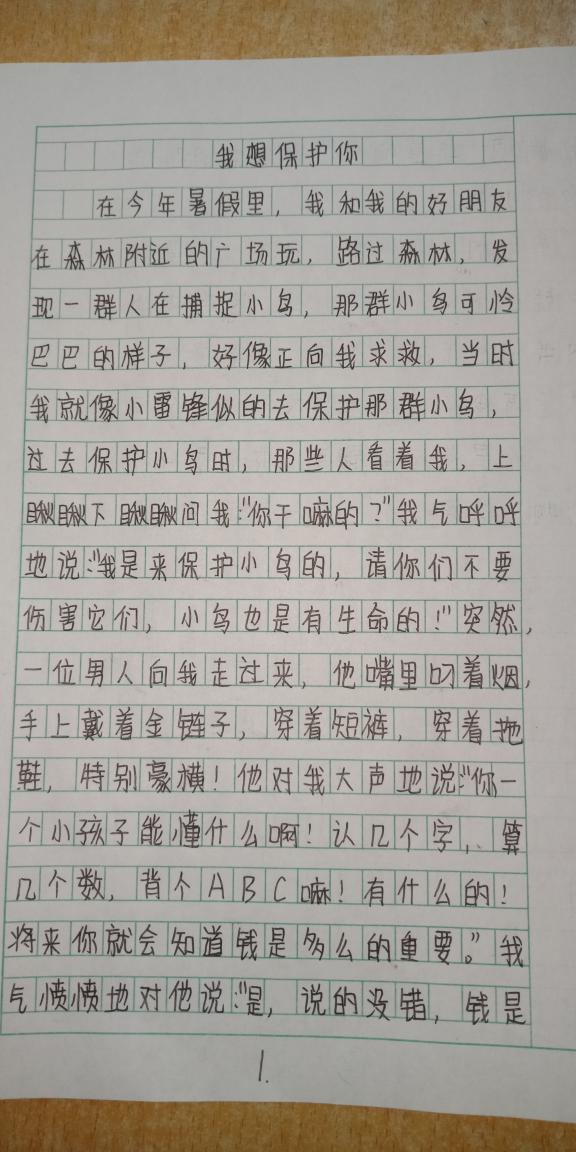 我想保护你
在今年暑假里，我和我的好朋友
在森林附近的广场玩，路过森林，发
现一群人在捕捉小鸟，那群小鸟可怜
巴巴的样子，好像正向我求救，当时
我就像小雷锋似的去保护那群小鸟，
过去保护小鸟时，那些人看着我，上
瞅瞅下瞅瞅问我：“你干嘛的？”我气呼呼
地说：“我是来保护小鸟的，请你们不要
伤害它们，小鸟也是有生命的！”突然，
一位男人向我走过来，他嘴里叼着烟，
手上戴着金链子，穿着短裤，穿着拖
鞋，特别豪横！他对我大声地说：“你一
个小孩子能懂什么啊！认几个字，算
几个数，背个ABC嘛！有什么的！
将来你就会知道钱是多么的重要。”我
气愤愤地对他说：“是，说的没错，钱是
1.